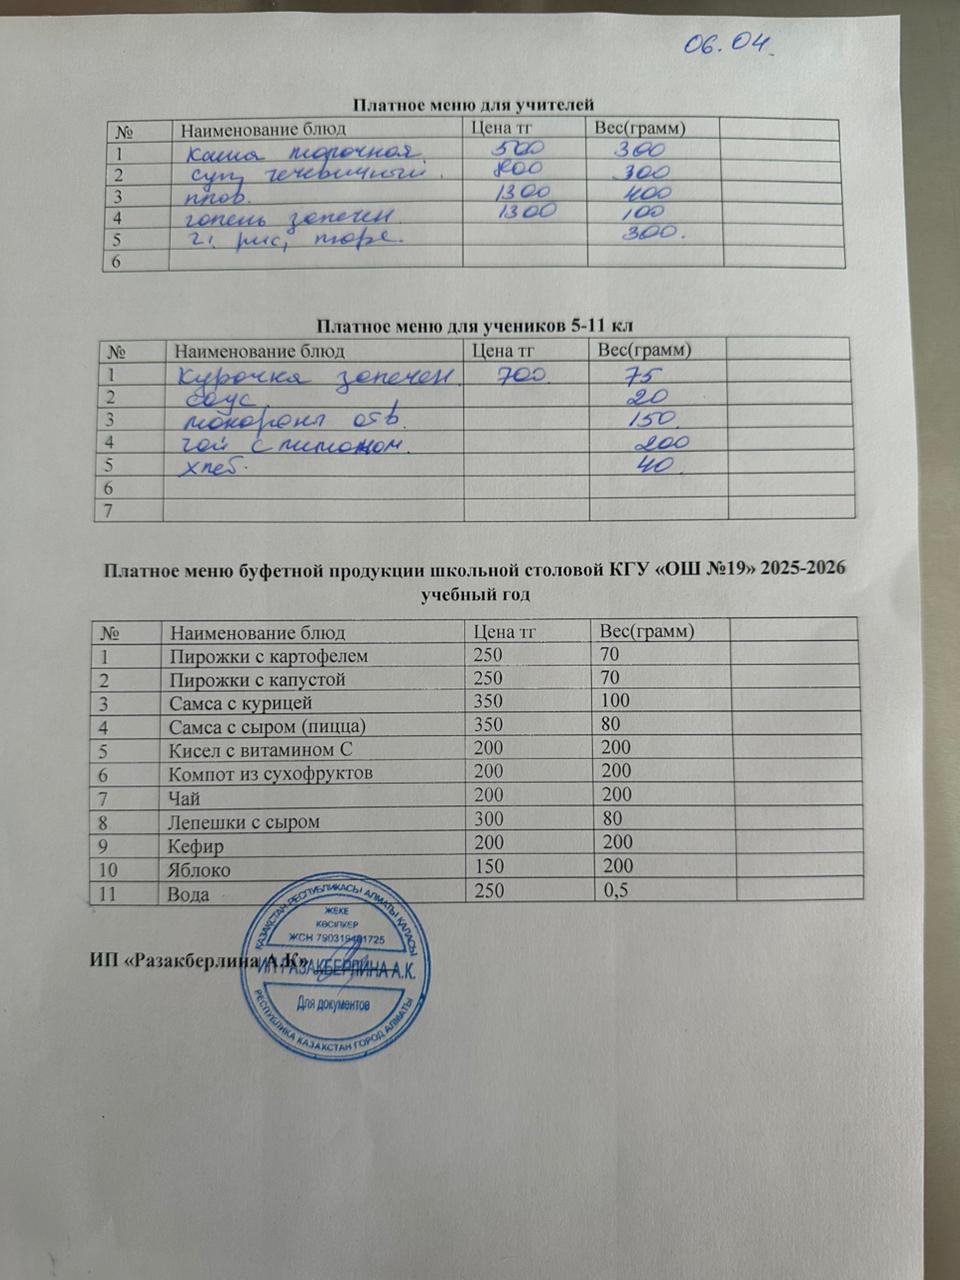 06.04
Платное меню для учителей
№ Наименование блюд Цена тг Вес(грамм)
1 каша молочная. 500 300
2 суп чечевичный. 800 300
3 плов. 1300 400
4 голень запечен 1300 100
5 г. рис, пюре. 300.
6
Платное меню для учеников 5-11 кл
№ Наименование блюд Цена тг Вес(грамм)
1 Курочка запечен. 700 75
2 соус. 20
3 макароны отв. 150.
4 чай с лимоном. 200
5 хлеб. 40.
6
7
Платное меню буфетной продукции школьной столовой КГУ «ОШ №19» 2025-2026
учебный год
№ Наименование блюд Цена тг Вес(грамм)
1 Пирожки с картофелем 250 70
2 Пирожки с капустой 250 70
3 Самса с курицей 350 100
4 Самса с сыром (пицца) 350 80
5 Кисел с витамином С 200 200
6 Компот из сухофруктов 200 200
7 Чай 200 200
8 Лепешки с сыром 300 80
9 Кефир 200 200
10 Яблоко 150 200
11 Вода 250 0,5
ҚАЗАҚСТАН РЕСПУБЛИКАСЫ АЛМАТЫ ҚАЛАСЫ
ЖЕКЕ
КӘСІПКЕР
ИП «Разакберлина А.К»
ИП РАЗАКБЕРЛИНА А.К.
Для документов
РЕСПУБЛИКА КАЗАХСТАН ГОРОД АЛМАТЫ